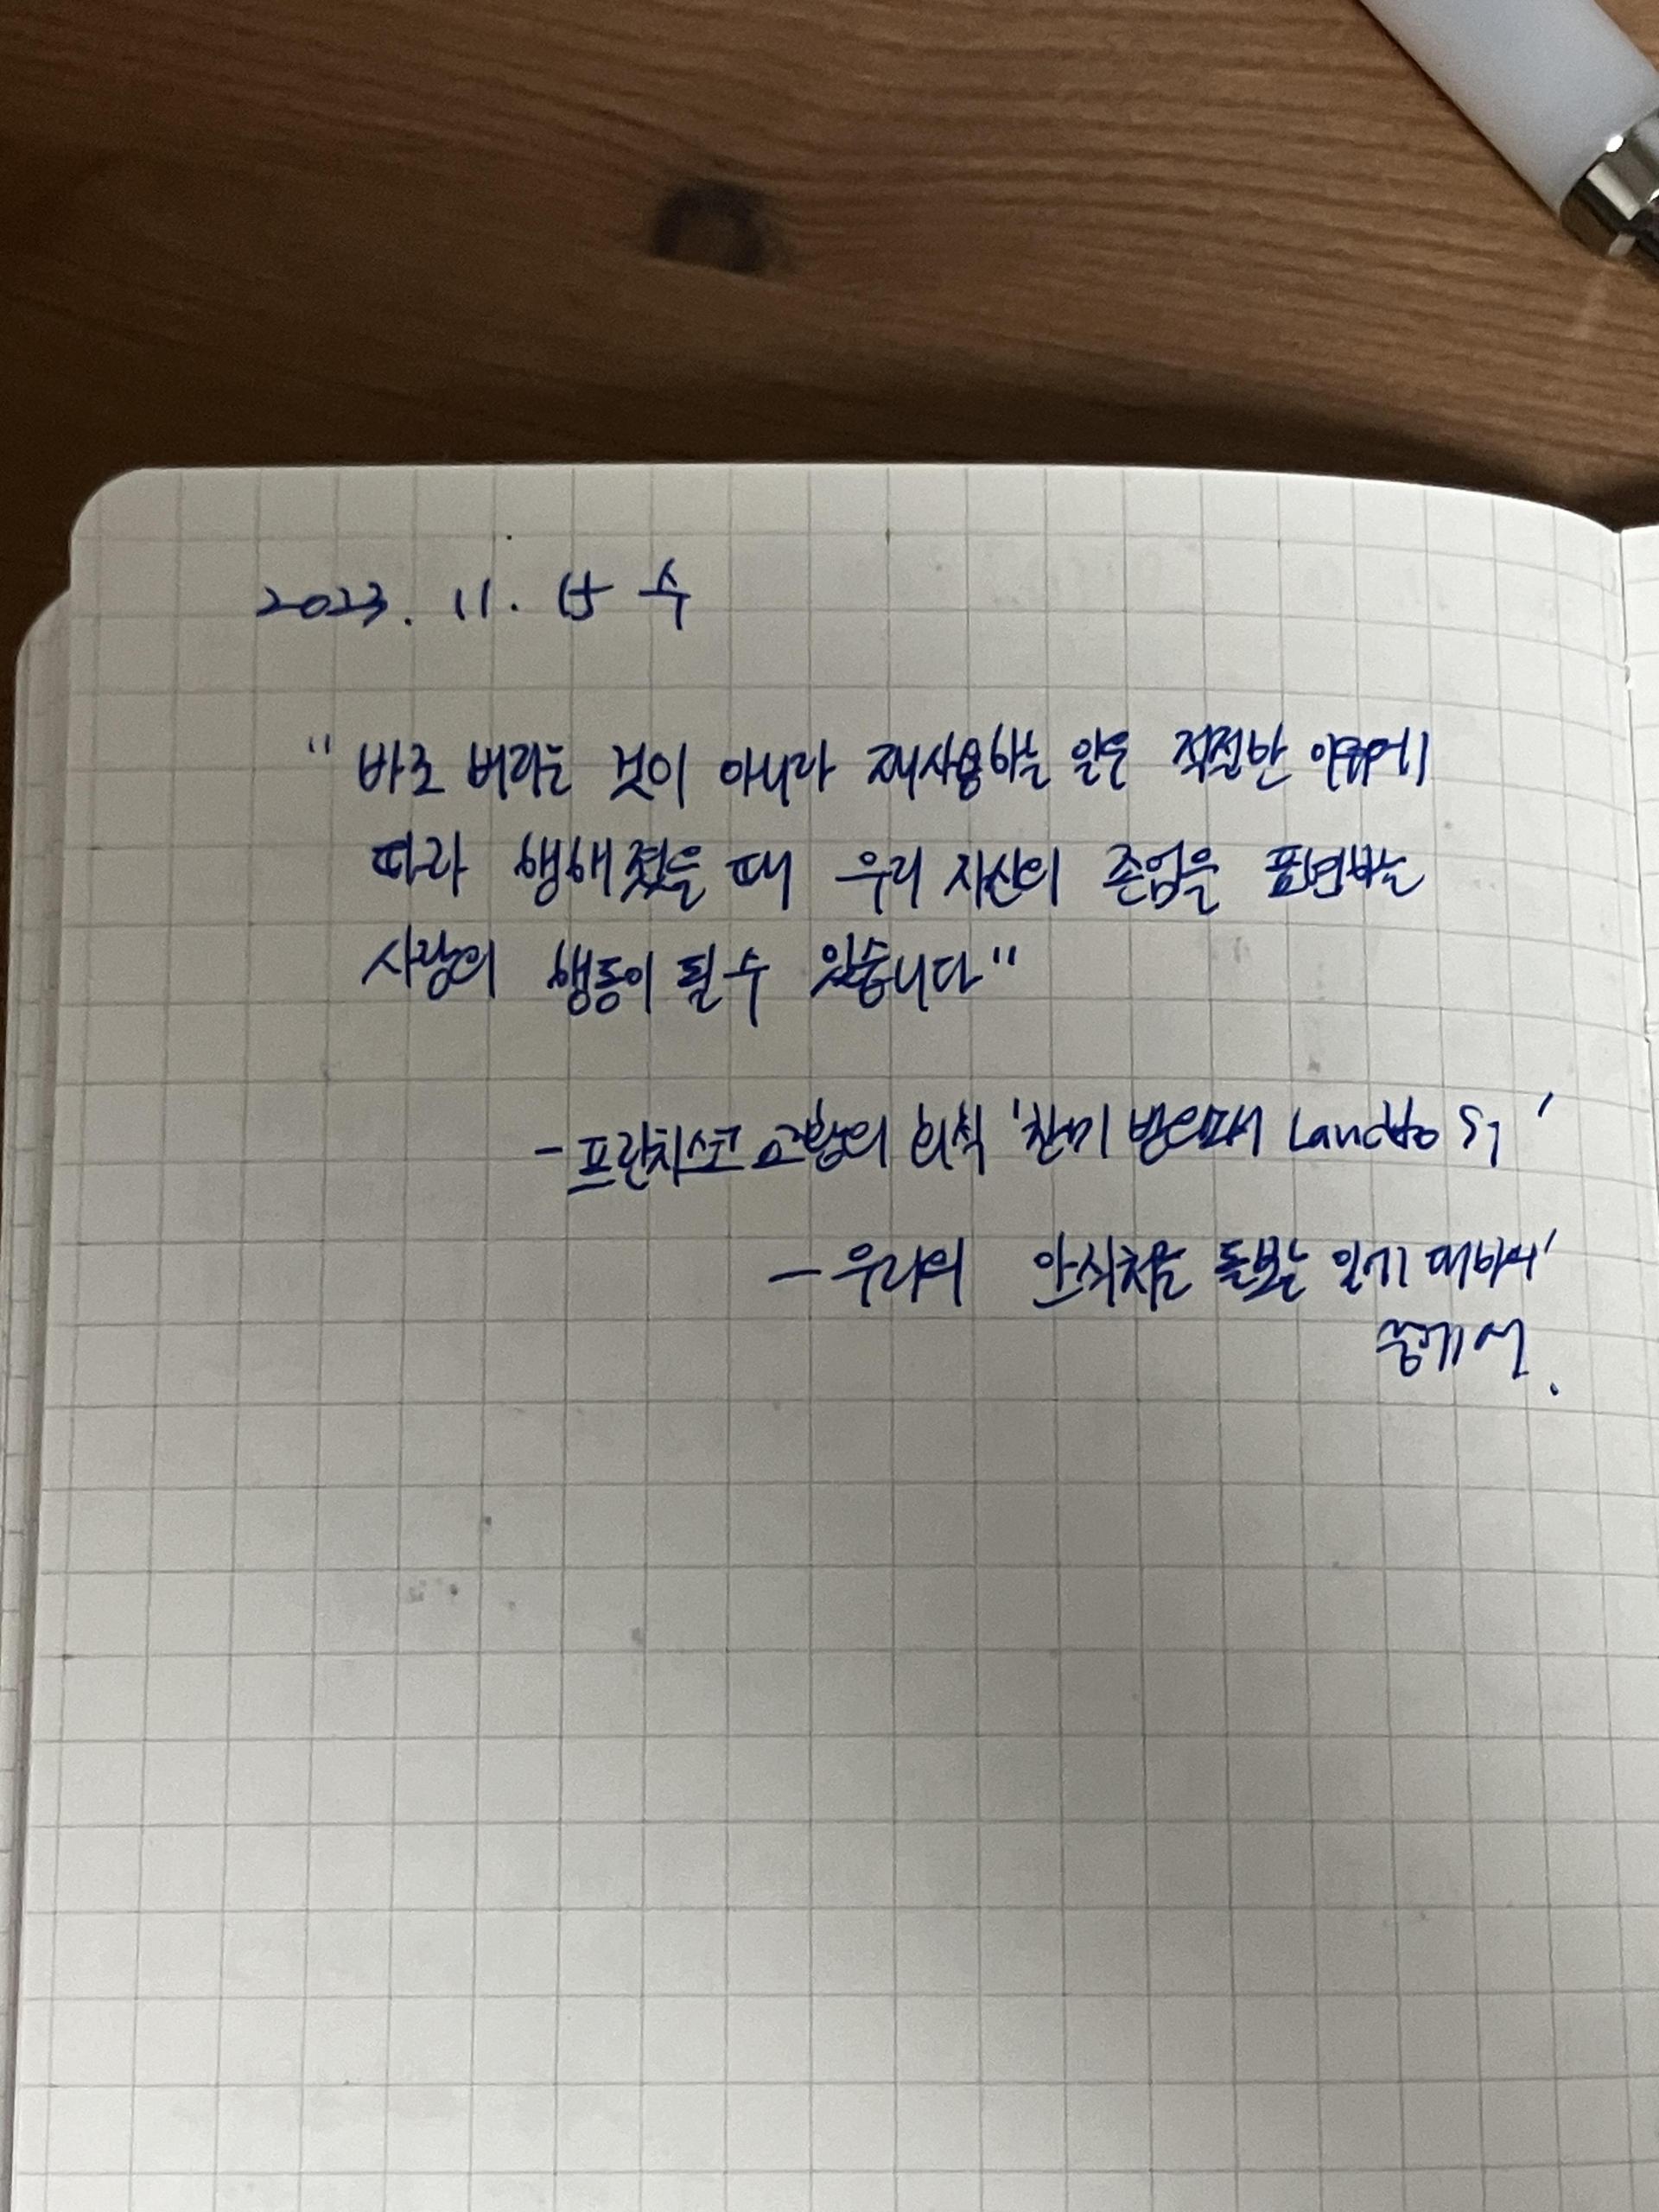 2023. 11. 15 수
" 바로 버리는 것이 아니라 재사용하는 일은 적절한 이유에
따라 행해졌을 때 우리 자신의 존엄을 표현하는
사랑의 행동이 될 수 있습니다"
- 프란치스코 교황의 회칙 '찬미 받으소서
- 우리의 안식처를 돌보는 일에 대하여'
중에서.